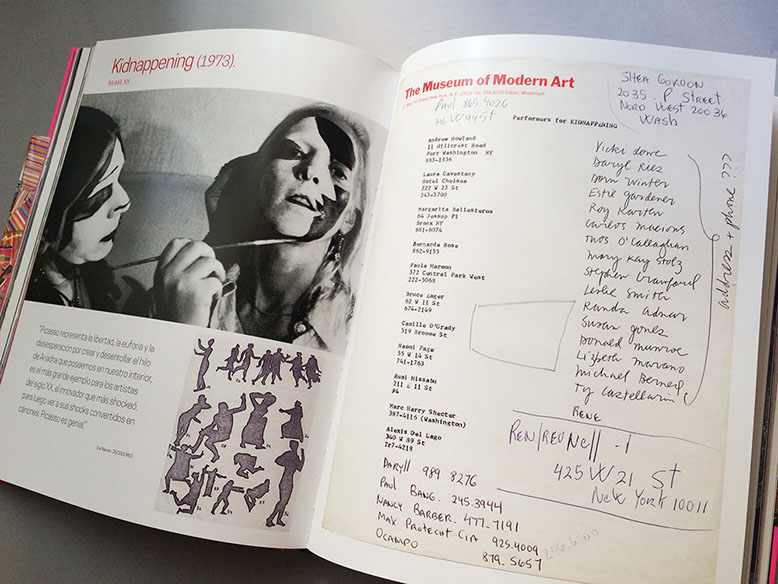 Kidnappening (1973).
MoMA, NY
"Picasso representa la libertad, la euforia y la
desesperación por crear y desenrollar el hilo
de Ariadna que poseemos en nuestro interior,
es el más grande ejemplo para los artistas
del siglo XX, el innovador que más shockeó,
para luego ver a sus shocks convertidos en
cánones. Picasso es genial."
The Museum of Modern Art
Paul 865.4026
316 W 94 St
SHEA GORDON
2035. P STREET
NORD WEST 20036
WASH
Performers for KIDNAPPENING
Andrew Howland
11 Hillcrest Road
Port Washington NY
883-1856
Laura Cavestany
Hotel Chelsea
222 W 23 St
243-3700
Margarita Ballesteros
64 Jessup Pl
Bronx NY
681-6074
Bernarda Rose
862-9135
Paula Harmon
372 Central Park West
222-5068
Bruce Eager
62 W 11 St
674-2149
Camille O'Grady
519 Broome St
Naomi Page
55 W 14 St
741-1763
Rumi Missabu
211 E 11 St
#4
Marc Harry Shecter
387-4116 (Washington)
Alexis Del Lago
340 W 89 St
Tr7-4218
Vicki Lowe
Daryl Ries
Dom Winter
Estie gardener
Roy Karten
Carlos Macious
Thos. O'Callaghan
Mary Kay Stolz
Stephen Crawford
Leslie Smith
Randa Adnar
Susan Jones
Donald Munroe
Lizbeth Marano
Michael Bernard
Ty Castellarin
RENE
address + phone ???
425 W 21 St
New York 10011
DARYLL 989 8276
PAUL BANG. 245.3944
NANCY BARBER. 477-7191
MAX PROTECHT CIA 925.4009
OCAMPO 879-5657